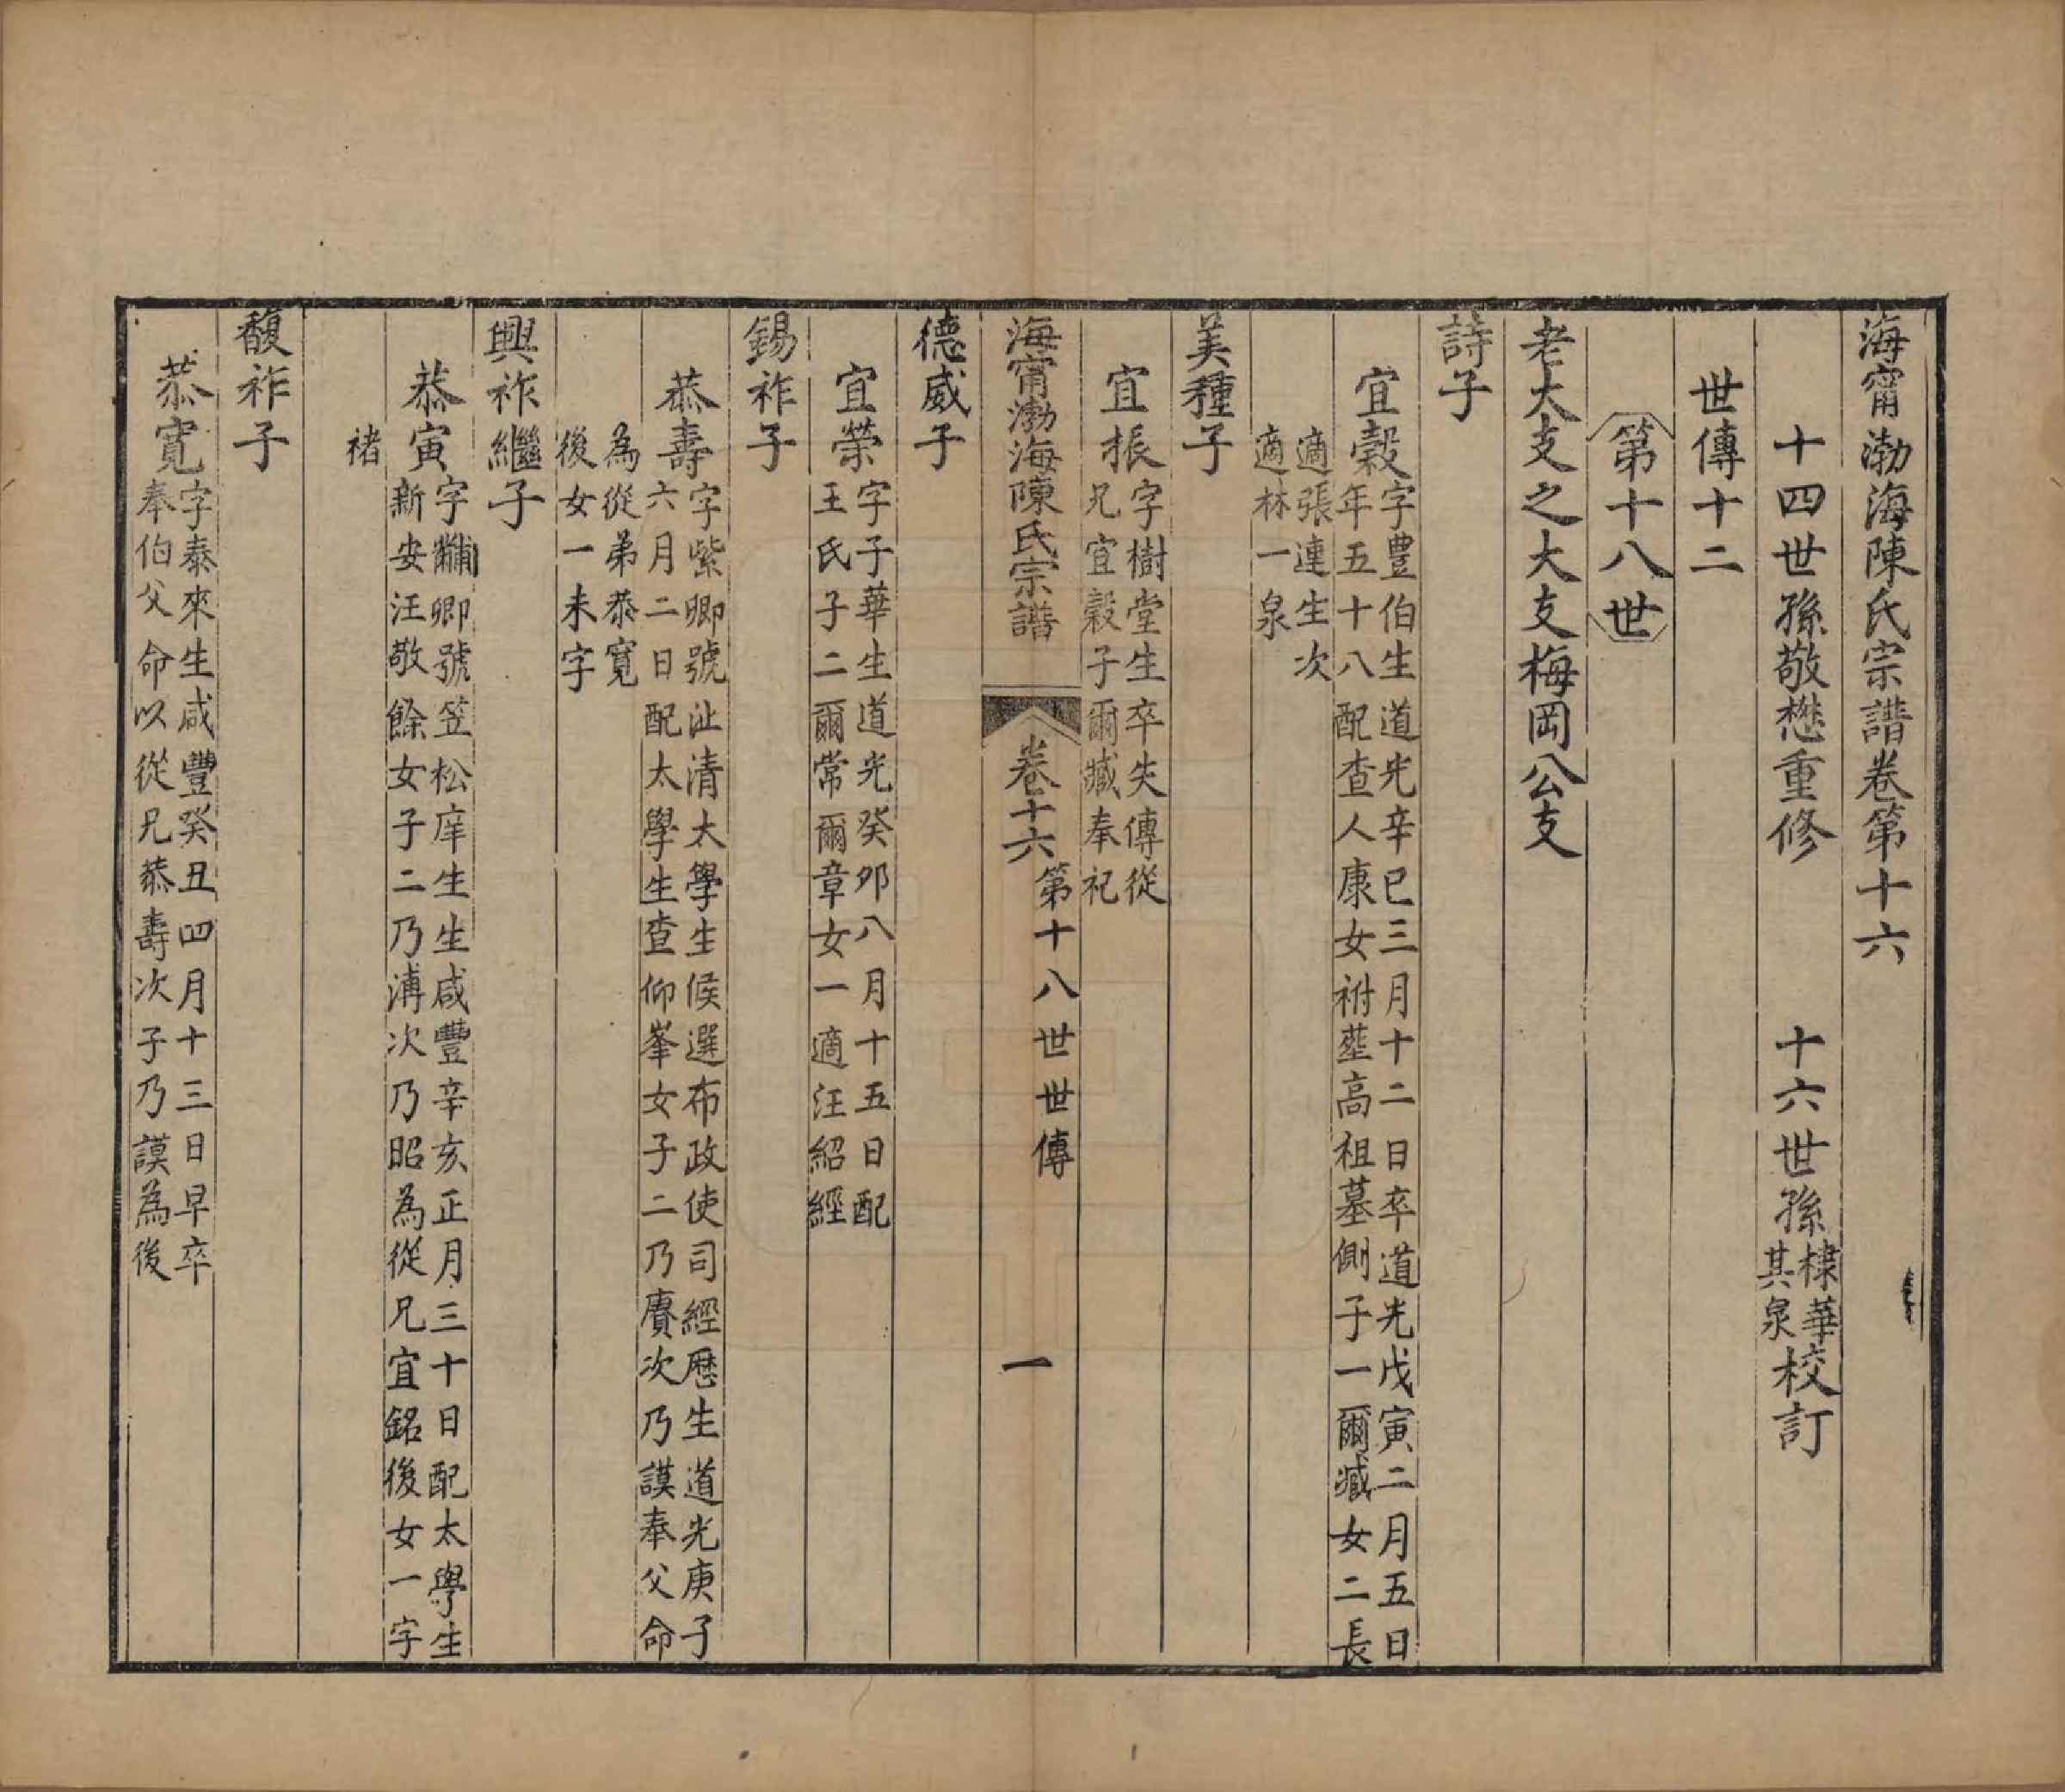 海甯渤海陳氏宗譜卷第十六
十四世孫敬懋重修 十六世孫棣華其泉校訂
世傳十二
第十八世
老大支之大支梅岡公支
詩子
宜穀字豊伯生道光辛巳三月十二日卒道光戊寅二月五日
年五十八配查人康女祔塟高祖墓側子一爾臧女二長
適張連生次
適林一泉
美種子
宜振字樹堂生卒失傳從
兄宜穀子爾臧奉祀
海甯渤海陳氏宗譜 卷十六 第十八世世傳 一
德威子
宜榮字子華生道光癸卯八月十五日配
王氏子二爾常爾章女一適汪紹經
錫祚子
恭壽字紫卿號沚清太學生候選布政使司經歷生道光庚子
六月二日配太學生查仰峯女子二乃賡次乃謨奉父命
為從弟恭寬
後女一未字
興祚繼子
恭寅字黼卿號笠松庠生生咸豐辛亥正月三十日配太學生
新安汪敬餘女子二乃溥次乃昭為從兄宜銘後女一字
褚
馥祚子
恭寬字泰來生咸豐癸丑四月十三日早卒
奉伯父命以從兄恭壽次子乃謨為後